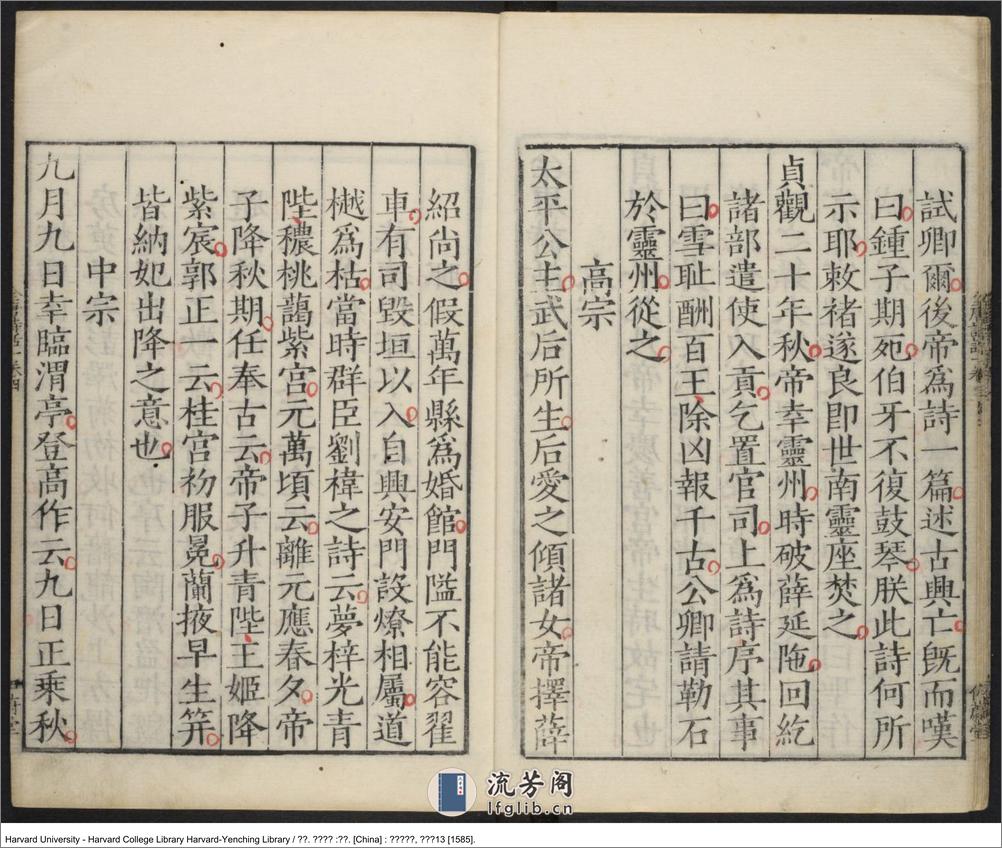 試卿爾後帝爲詩一篇述古興亡旣而嘆
曰鍾子期死伯牙不復鼓琴朕此詩何所
示耶敕褚遂良卽世南靈座焚之
貞觀二十年秋帝幸靈州時破薛延陁回紇
諸部遣使入貢乞置官司上爲詩序其事
曰雪耻酬百王除凶報千古公卿請勒石
於靈州從之
高宗
太平公主武后所生后愛之傾諸女帝擇薛
紹尚之假萬年縣爲婚館門隘不能容翟
車有司毀垣以入自興安門設燎相屬道
樾爲枯當時群臣劉褘之詩云夢梓光青
陛穠桃藹紫宮元萬頃云離元應春夕帝
子降秋期任奉古云帝子升青陛王姬降
紫宸郭正一云桂宮初服冕蘭掖早生笄
皆納妃出降之意也
中宗
九月九日幸臨渭亭登高作云九日正乘秋
流芳阁
lfglib.cn
Harvard University - Harvard College Library Harvard-Yenching Library / ??. ???? :??. [China] : ?????, ???13 [1585].